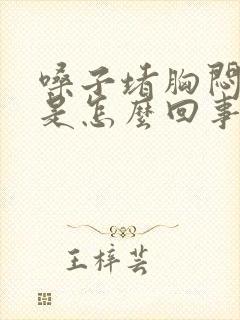 嗓子堵胸闷
是怎麼回事
王梓芸